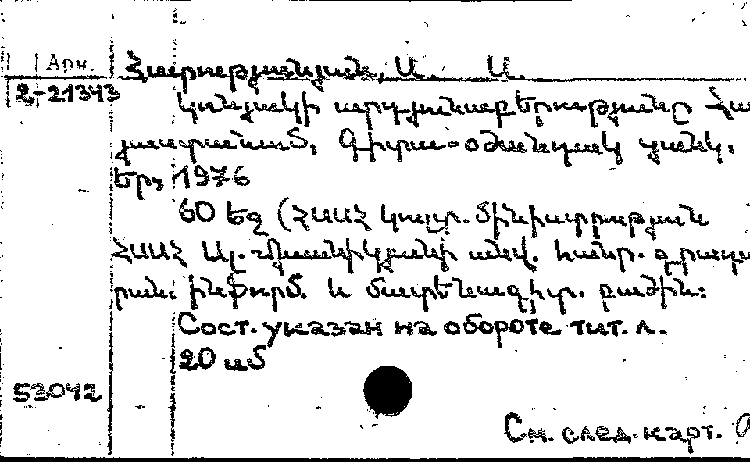 Арм.
Հարությունյան, Ա. Ա.
2-21343
կոնյակի արդյունաբերությունը Հա
յաստանում. Գիտա-օժանդակ ցանկ.
Եր., 1976
60 եզ (ՀՍՍՀ կուլտ. մինիստրության
ՀՍՍՀ Ալ. Մյասնիկյանի անվ. հանր. գրադա
րան. ինֆորմ. և մատենագիտ. բաժին:
Сост. указан на обороте тит. л.
20 սմ
53042
См. след. карт.